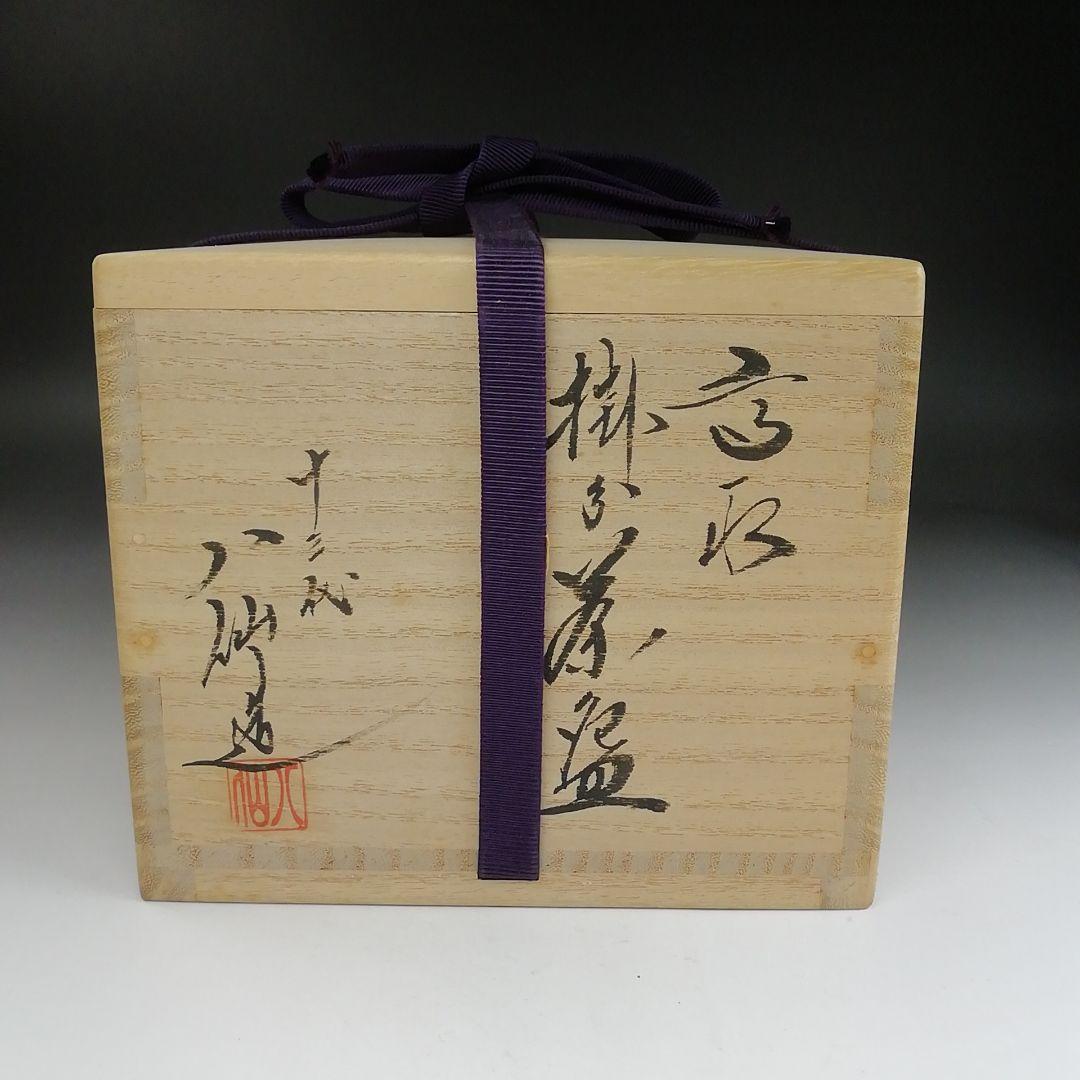 高取
掛分茶盌
十三代
八仙造
八仙